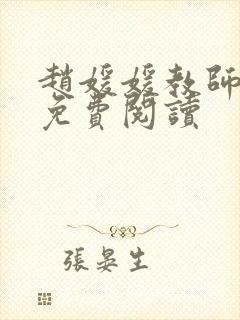 趙媛媛教師
免費閱讀
張晏生